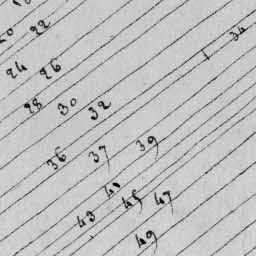 20 22
24 26
28 30 32 1 34
36 37 39
43 41 45 47
49